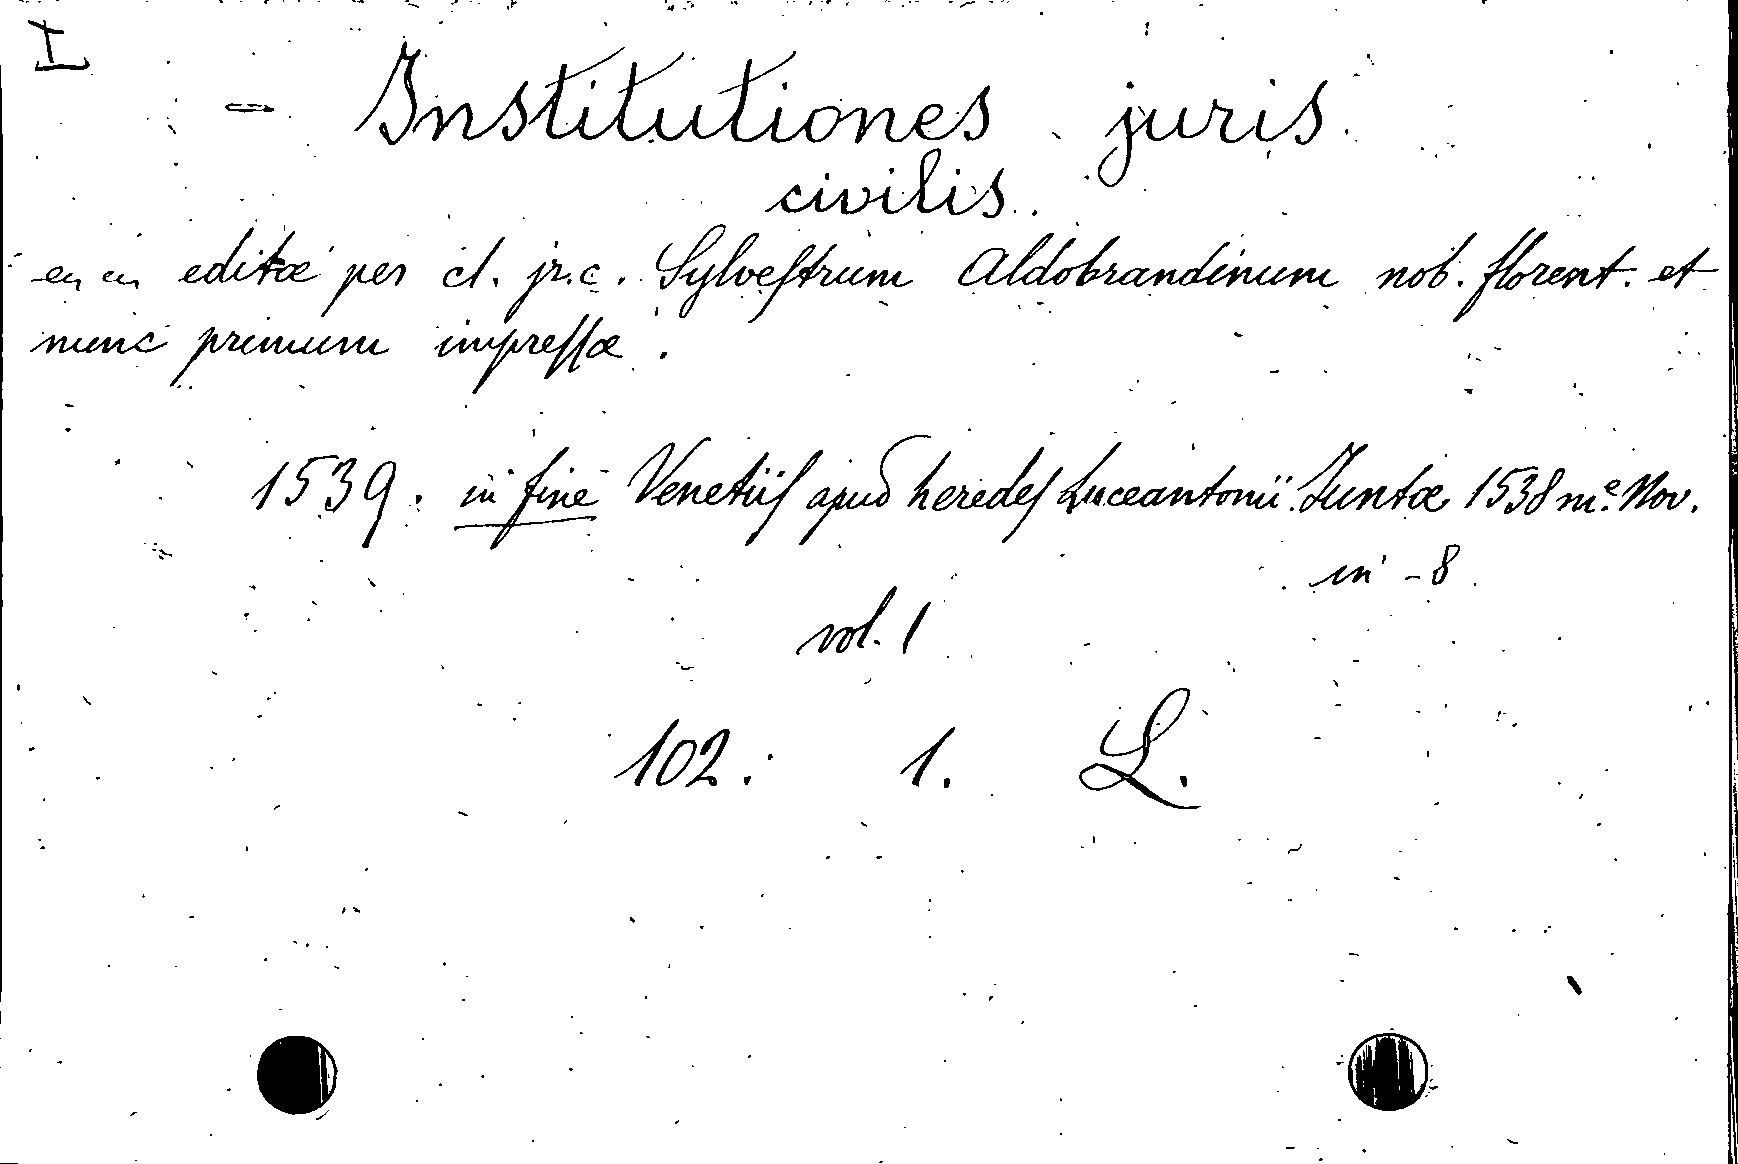 I
- Institutiones juris
civilis
editæ per cl. jr.c. Sylveſtrum Aldobrandinum nob. florent. et
nunc primum impreſſæ.
1539. in fine Venetiiſ apud heredeſ Luceantonii Juntæ 1538 mᵉ. Nov.
in -8
vol. 1
102. 1. L.